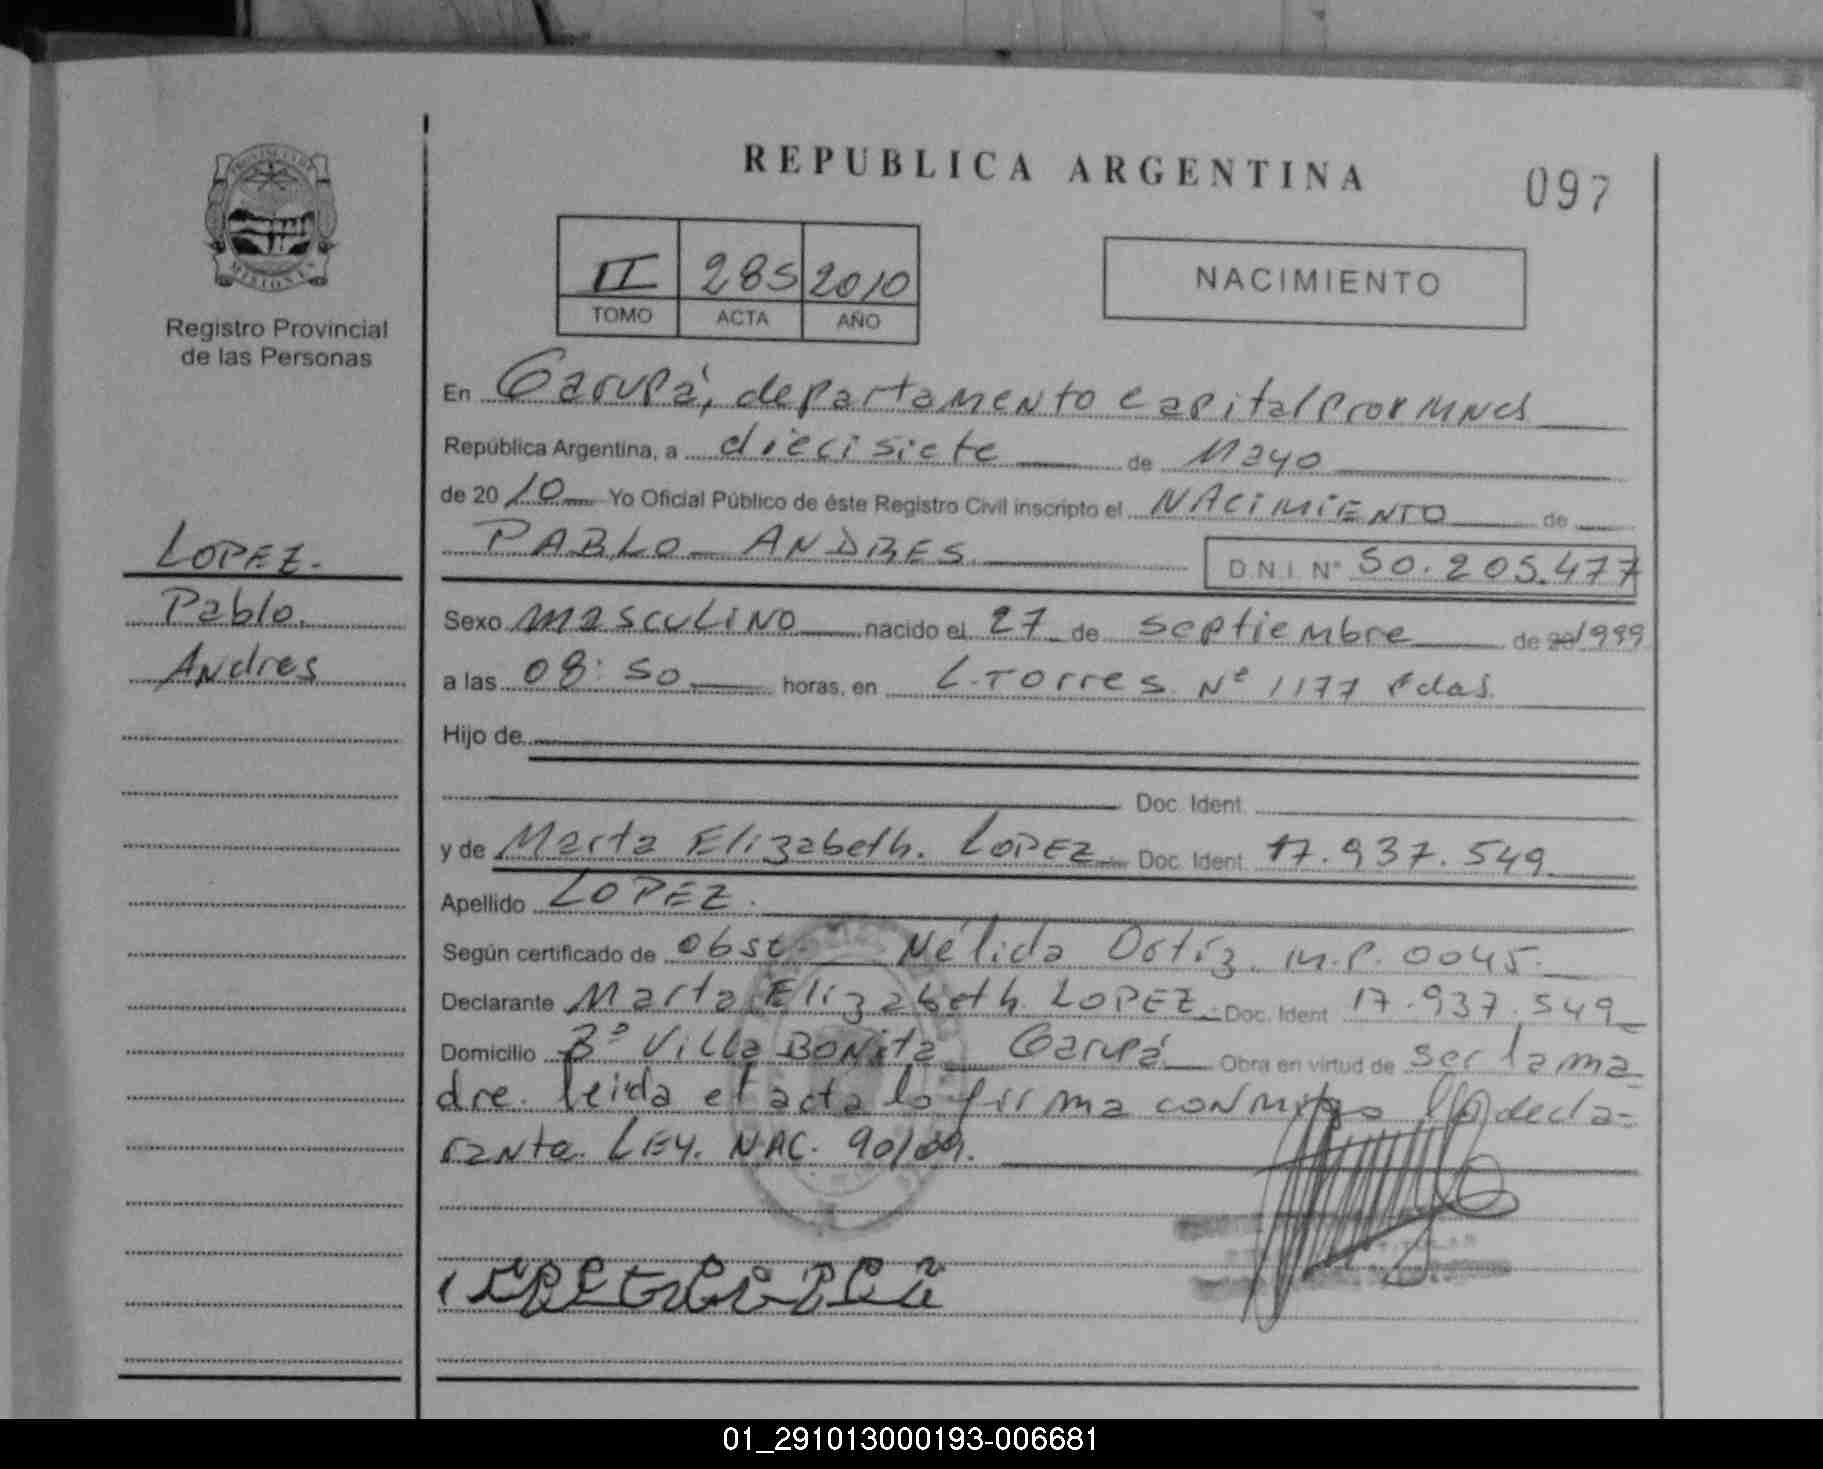 REPUBLICA ARGENTINA
097
II 285 2010
TOMO ACTA AÑO
NACIMIENTO
Registro Provincial
de las Personas
En Garupá, departamento capital Prov Mnes
República Argentina, a diecisiete de Mayo
de 2010 Yo Oficial Público de éste Registro Civil inscripto el NACIMIENTO de
PABLO ANDRES D.N.I. Nº 50.205.477
LOPEZ.
Pablo.
Andres
Sexo masculino nacido el 27 de septiembre de 20 1999
a las 08:50 horas, en L. Torres Nº 1177 Pdas.
Hijo de
Doc. Ident.
y de Marta Elizabeth. LOPEZ Doc. Ident. 17.937.549
Apellido LOPEZ.
Según certificado de obst. Nélida Ortíz. M.P. 0045.
Declarante Marta Elizabeth. LOPEZ Doc. Ident 17.937.549
Domicilio Bº Villa BONita Garupá Obra en virtud de ser la ma
dre. leida el acta la firma conmigo la decla=
rante. LEY. NAC. 90/09.
01_291013000193-006681